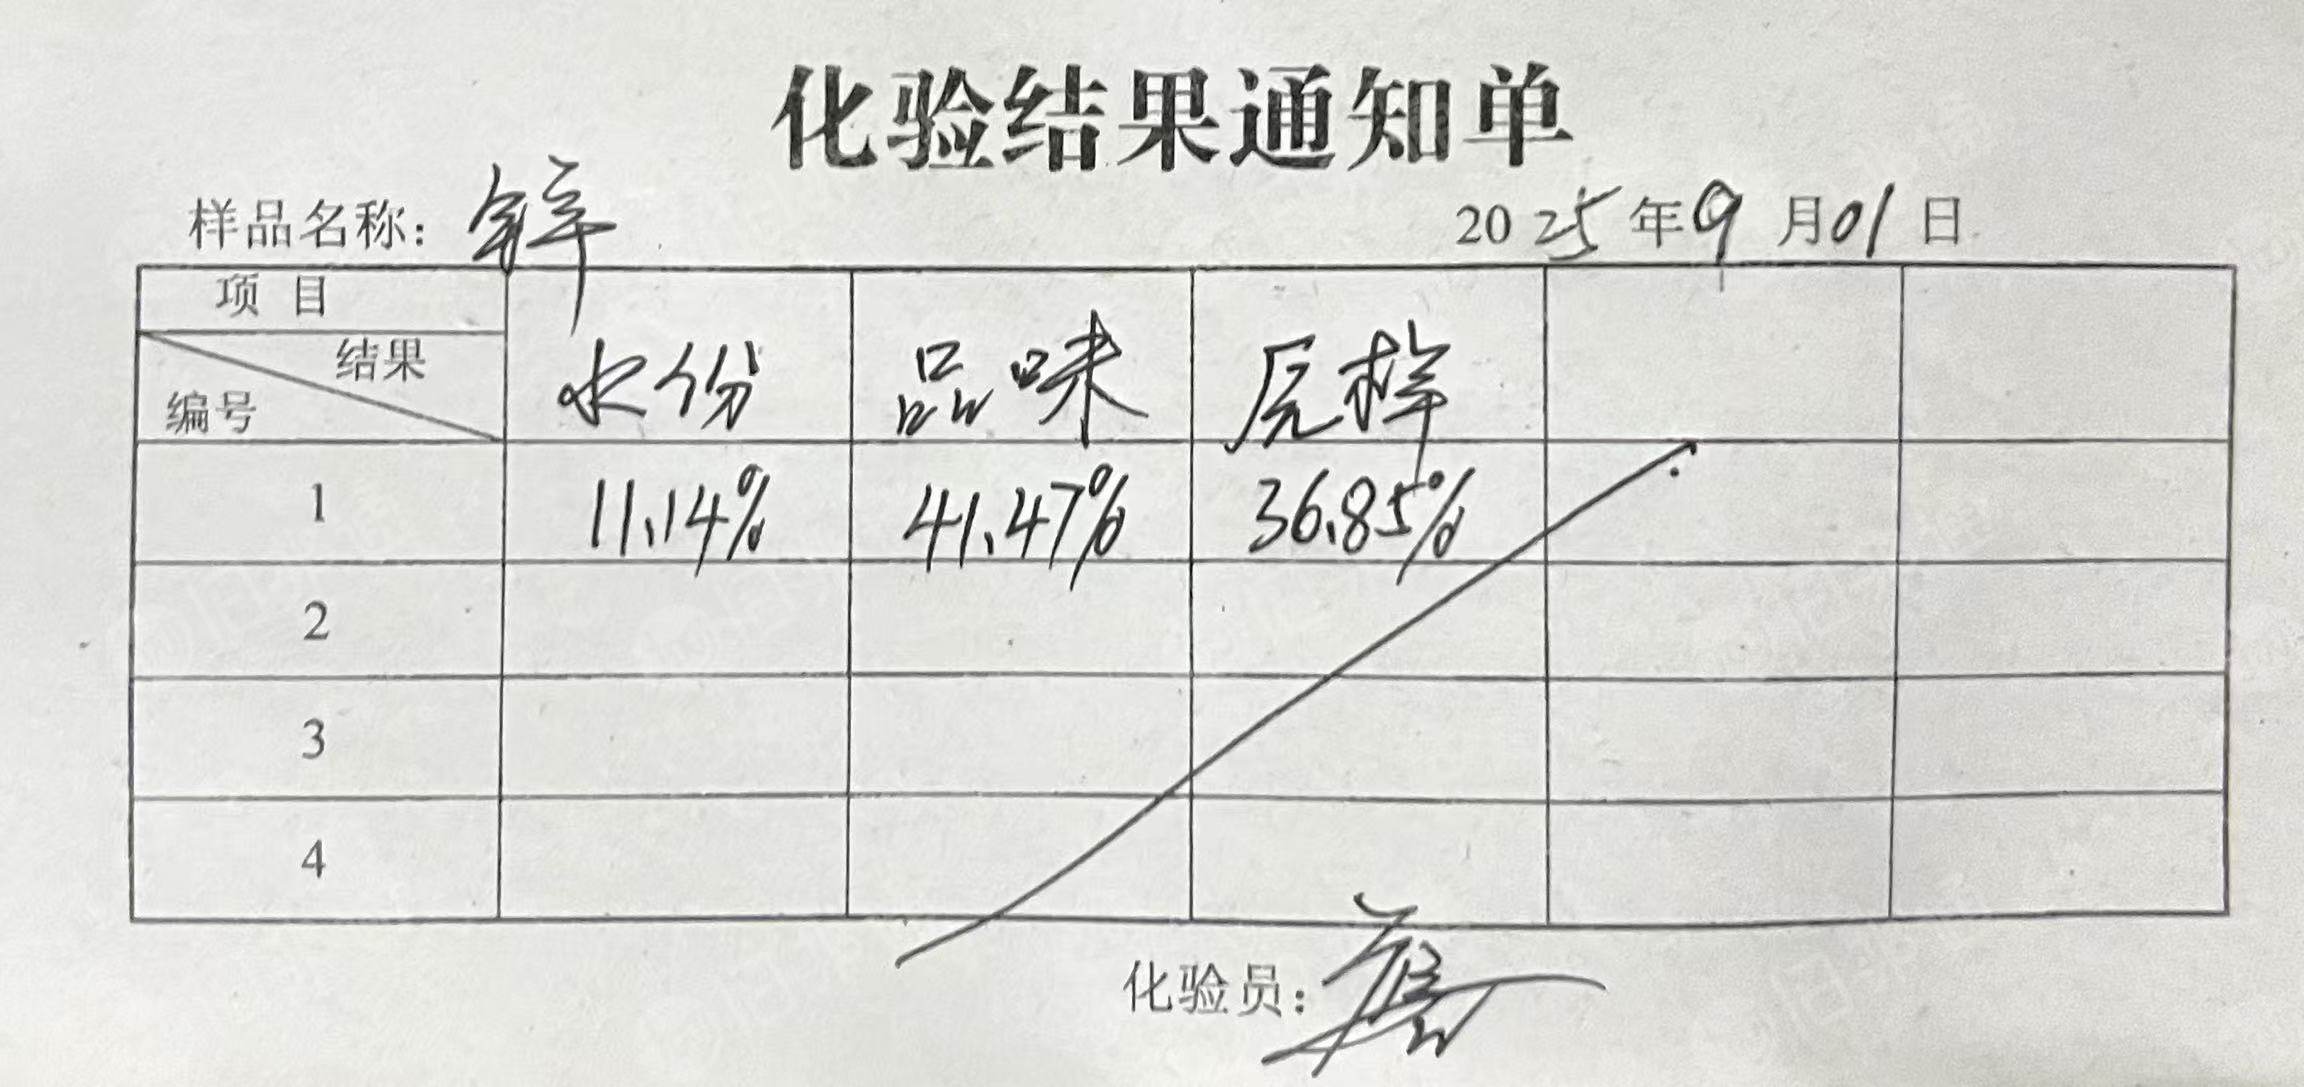 化验结果通知单
样品名称：锌 2025年9月01日
项目 水份 品味 原样
结果
编号
1 11.14% 41.47% 36.85%
2
3
4
化验员：